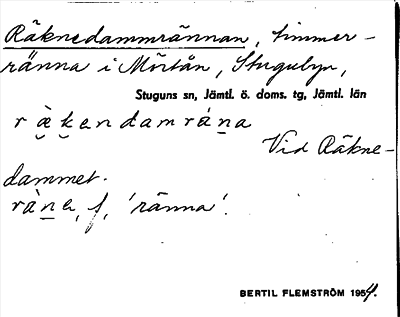 Räknedammrännan, timmer-
ränna i Mörtån, Stugubyn,
Stuguns sn, Jämtl. ö. doms. tg, Jämtl. län
ràkendamrána
Vid Räkne-
dammet.
f, 'ränna'.
BERTIL FLEMSTRÖM 1954.